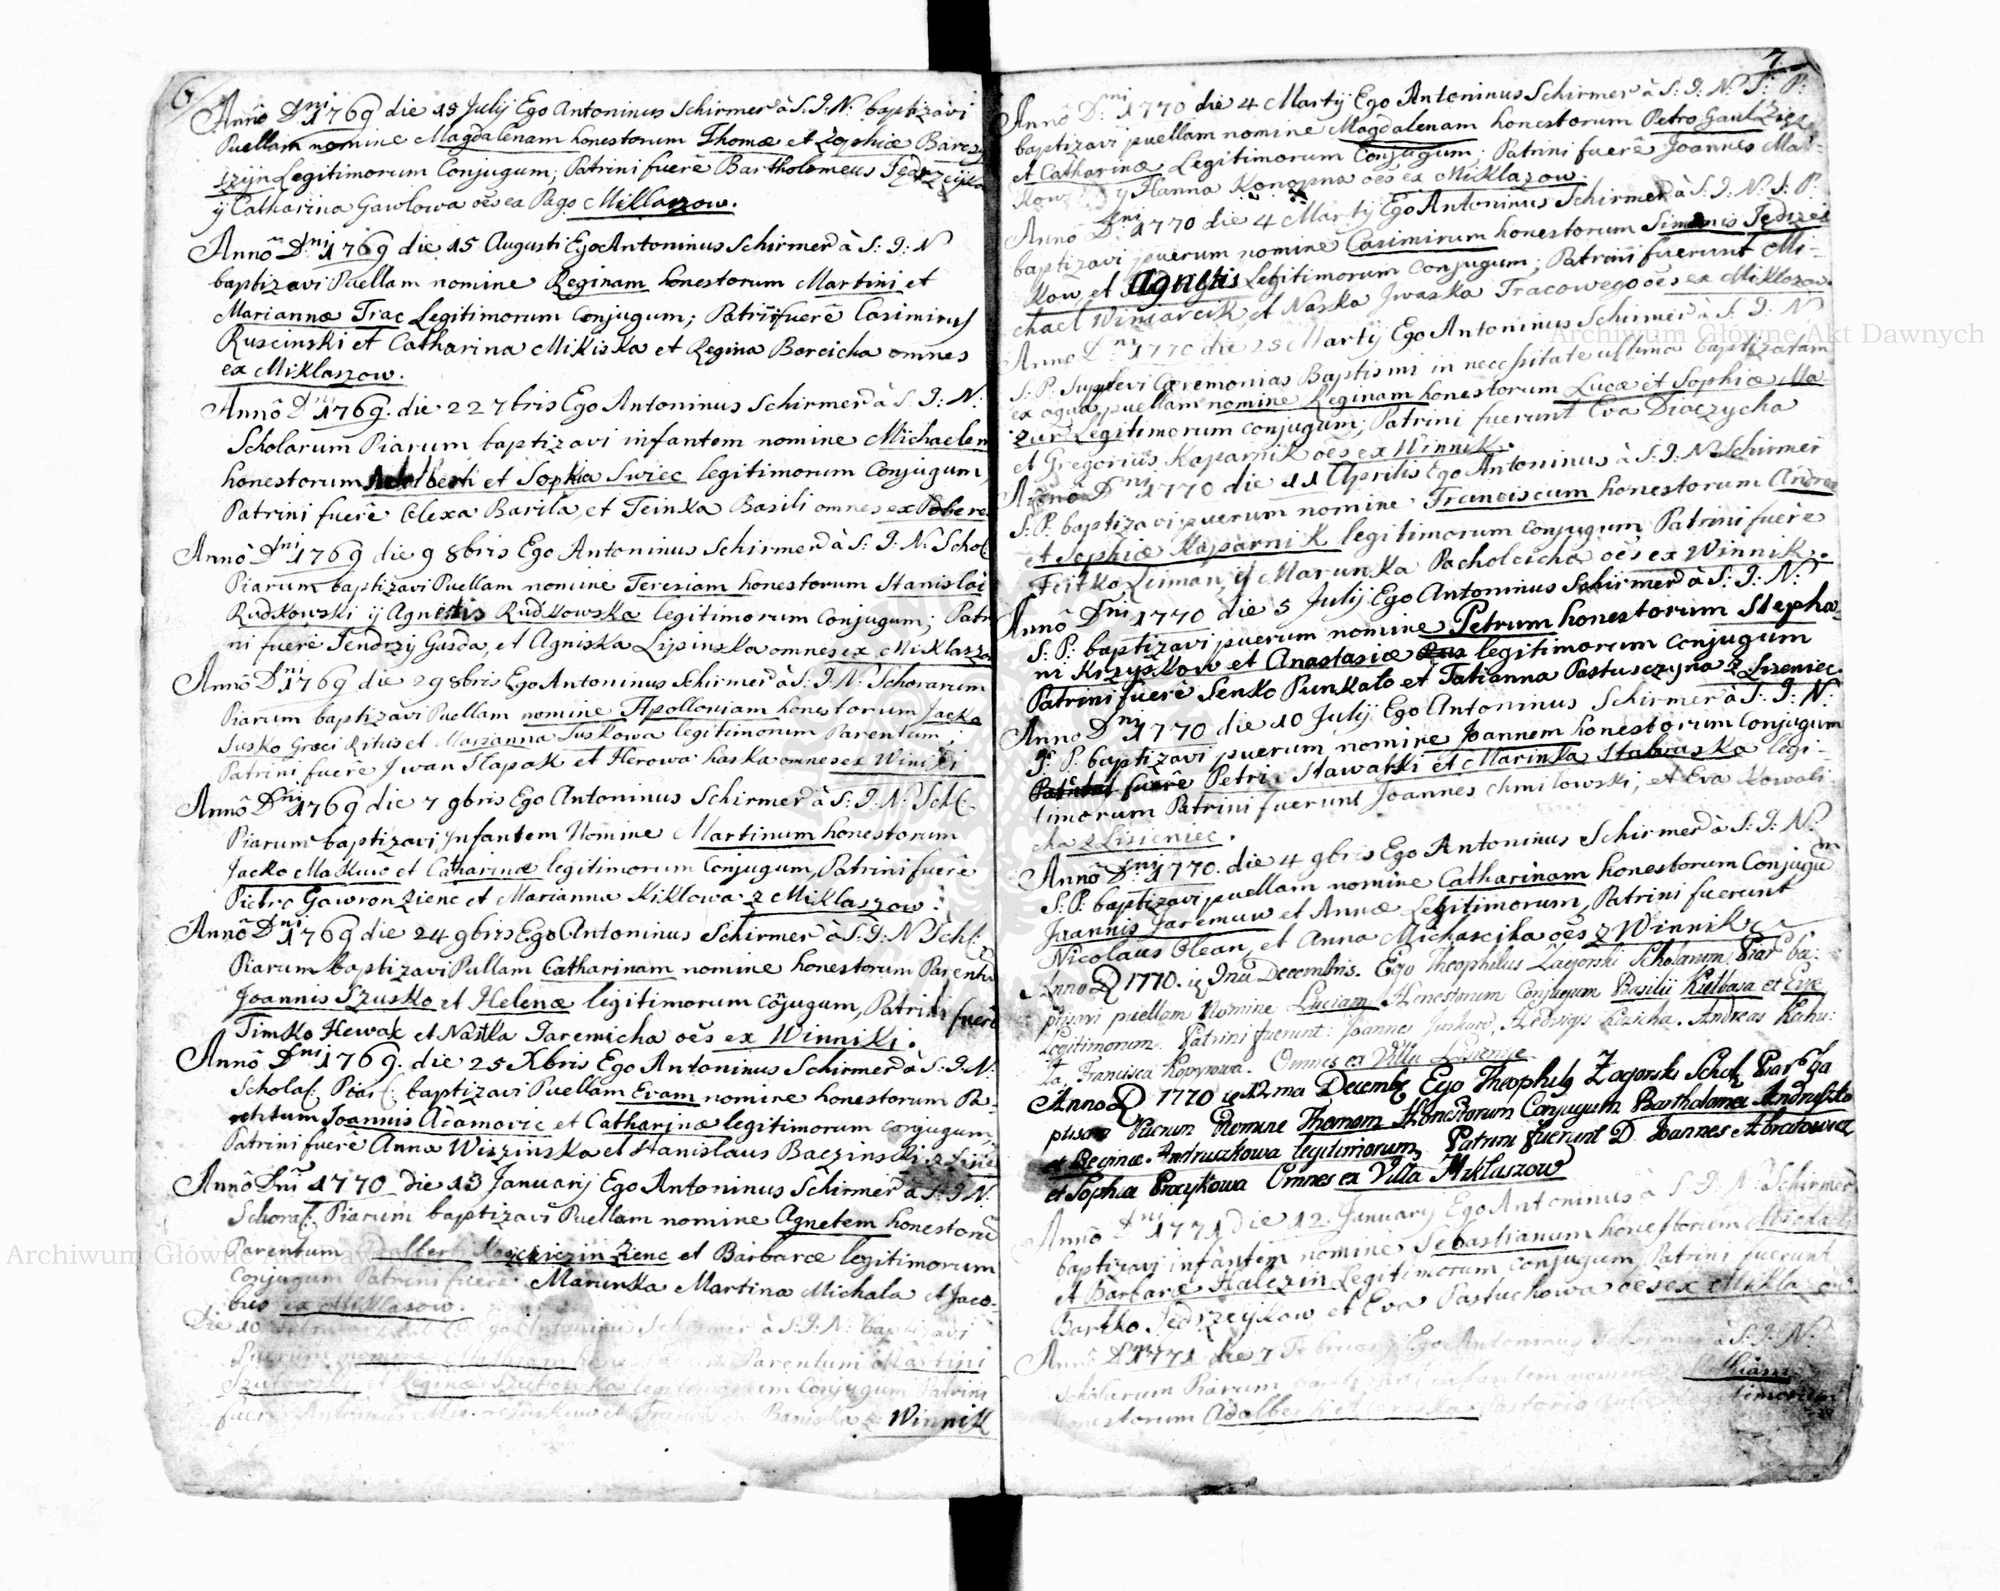 6
Annô Dni 1769 die 15 Julij Ego Antoninus Schirmer à S: J: N: baptizavi
Puellam nomine Magdalenam honestorum Thomæ et Zophiæ Barcsz
szÿn Legitimorum Conjugum; Patrini fuerê Bartholomeus
ÿ Catharina Gawlowa oēs ex Pago Miklaszow.
Annô Dni 1769 die 15 Augusti Ego Antoninus Schirmer à S: J: N
baptizavi Puellam nomine Reginam honestorum Martini et
Mariannæ Trac Legitimorum Conjugum; Patrini fuerê Casimirus
Ruscinski et Catharina Mikiska et Regina Borcicha omnes
ex Miklaszow.
Annô Dni 1769. die 22 7bris Ego Antoninus Schirmer à S: J: N:
Scholarum Piarum baptizavi infantem nomine Michaelem
honestorum Adalberti et Sophia Swiec legitimorum Conjugum,
Patrini fuerê Olexa Barila, et Teinka Basili omnes ex
Annô Dni 1769 die 9 8bris Ego Antoninus Schirmer à S: J: N: Schol:
Piarum baptizavi Puellam nomine Teresiam honestorum Stanislai
Rudkowski ÿ Agnetis Rudkowska legitimorum Conjugum; Patri
ni fuerê Jendrzy Gasda, et Agniska Lipinska omnes ex Miklaszo
Annô Dni 1769 die 29 8bris Ego Antoninus Schirmer à S: J: N: Schorarum
Piarum baptizavi Puellam nomine Apolloniam honestorum Jacka
Jusko Græci Ritus et Marianna Juskowa legitimorum Parentum;
Patrini fuerê Jwan Slapak et Herowa haska omnes ex Winiki
Annô Dni 1769 die 7 9bris Ego Antoninus Schirmer à S: J: N: Sch:
Piarum baptizavi Jnfantem Nomine Martinum honestorum
Jacko Maskuw et Catharinæ legitimorum Conjugum, Patrini fuerê
Pietro Gawronziene et Marianna Kiklowa z Miklaszow.
Annô Dni 1769 die 24 9bris Ego Antoninus Schirmer à S: J: N: Sch:
Piarum baptizavi Pullam Catharinam nomine honestorum Parentū
Joannis Szusko et Helenæ legitimorum cōjugum, Patrini fuerê
Timko Hewak et Nastka Jaremicha oēs ex Winniki.
Annô Dni 1769. die 25 Xbris Ego Antoninus Schirmer à S: J: N:
Schola: Piar: baptizavi Puellam Evam nomine honestorum Pa-
rentum Joannis Adamovic et Catharinæ legitimorum conjugum,
Patrini fuerê Anna Wiszinska et Stanislaus Baczinski
Annô Dni 1770 die 13 Januarij Ego Antoninus Schirmer à S: J: N:
Schora: Piarum baptizavi Puellam nomine Agnetem honestorū
Parentum et Barbaræ legitimorum
Conjugum Patrini fuerê Marunka Martina Michala et Jaco-
bus ex Miklasow.
Die 10 Ego Antoninus Schirmer à S: J: N: baptizavi
Puerum nomine Parentum Martini
et Reginæ legitimorum Conjugum Patrini
fuerê Antonius Winnik
7
Annô Dni 1770 die 4 Martij Ego Antoninus Schirmer à S: J: N: S: P:
baptizavi puellam nomine Magdalenam honestorum Petro
et Catharinæ Legitimorum Conjugum; Patrini fuerê Joannes
ÿ Hanna Konopna oēs ex Miklazow.
Annô Dni 1770 die 4 Martij Ego Antoninus Schirmer à S: J: N: S: P:
baptizavi puerum nomine Casimirum honestorum Simonis Jedrzei
kow et Agnetis Legitimorum conjugum; Patrini fuerunt Mi-
chael Winiarcik, et Naska Jwaska Tracowego oēs ex Miklozow.
Annô Dni 1770 die 25 Martij Ego Antoninus Schirmer à S: J: N
S: P. Supplevi Ceremonias Baptismi in necessitate ultima baptizatam
ex aqua, puellam nomine Reginam honestorum Lucæ et Sophiæ Ma-
zur Legitimorum conjugum; Patrini fuerunt Eva Draczycha
et Gregorius Kaparnik oēs ex Winnik.
Annô Dni 1770 die 11 Aprilis Ego Antoninus à S: J: N: Schirmer
S: P. baptizavi puerum nomine Franciscum honestorum Andreæ
et Sophiæ Kaparnik legitimorum conjugum Patrini fuerê
Feitka Leiman, ÿ Marunka Pacholcicha oēs ex Winnik.
Annô Dni 1770 die 5 Julij Ego Antoninus Schirmer à S: J: N:
S: P: baptizavi puerum nomine Petrum honestorum Stepha-
ni Krzyskow et Anastasiæ legitimorum conjugum
Patrini fuerê Senko Punkalo et Tatianna Pastusczyna z Liseniec.
Annô Dni 1770 die 10 Julij Ego Antoninus Schirmer à S: J: N:
S: P. baptizavi puerum nomine Joannem honestorum Conjugum
fuerê Petri Stawarski et Marinka Stabraska legi-
timorum Patrini fuerunt Joannes Chmilowski, et Eva Kowali-
cha z Lisieniec.
Annô Dni 1770. die 4 9bris Ego Antoninus Schirmer à S: J: N:
S: P. baptizavi puellam nomine Catharinam honestorum Conjugūm
Joannis Jaremuw et Annæ Legitimorum, Patrini fuerunt
Nicolaus Olean, et Anna Michascika oēs z Winnik
Anno D 1770. Decembris. Ego Theophilus Zagorski Scholarum Piar: ba:
ptisavi puellam Nomine Luciam Honestorum Conjugum Basilii Kiełbasa et Evæ
Legitimorum. Patrini fuerunt: Joannes Juskow, Hedvigis Andreas Kahu:
ła, Francisca Kopyrowa. Omnes ex Villa Lisienice
Anno D 1770 12ma Decemb: Ego Theophilus Zagorski Schol: Piar: ba
ptisavi Puerum Nomine Thomam Honestorum Conjugum Bartholomei Andruszko
et Reginæ Andruszkowa legitimorum, Patrini fuerunt D. Joannes Abratowicz
et Sophia Pracykowa Omnes ex Villa Miklaszow
Annô Dni 1771 die 12 January Ego Antoninus à S: J: N: Schirmer
baptizavi infantem nomine Sebastianum honestorum
et Barbaræ Halczin Legitimorum conjugum, Patrini fuerunt
Bartko Jedrzeykow et Eva Pastuchowa oēs ex Mikla
Annô Dni 1771 die 7 February Ego Antoninus Schirmer à S: J: N:
Scholarum Piarum baptizavi infantem nomine
honestorum Adalberti et